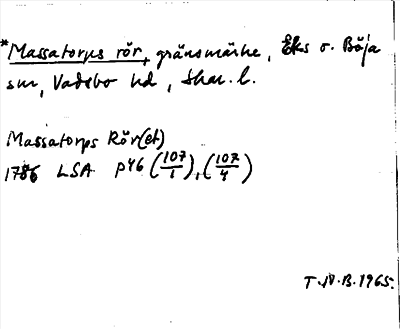 *Massatorps rör, gränsmärke, Eks o. Böja
snr, Vadsbo hd, Skar. l.
Massatorps Rör(et)
1786 LSA P46 (107/1), (107/4)
T.N.B. 1965.